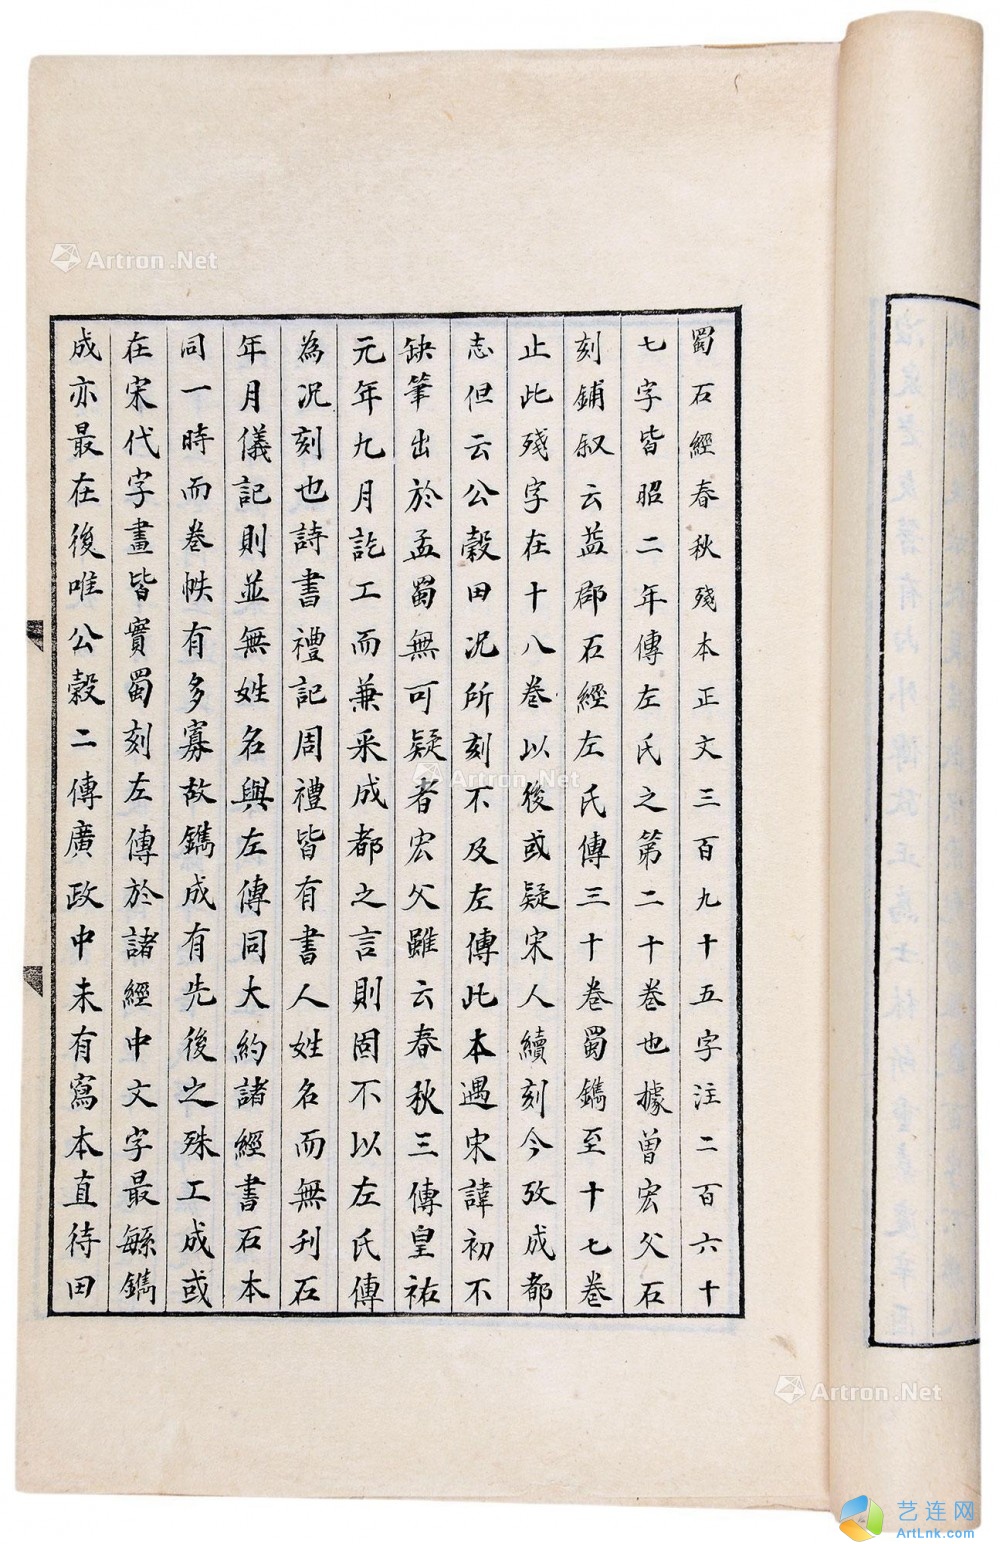 蜀石經春秋殘本正文三百九十五字注二百六十
七字皆昭二年傳左氏之第二十卷也據曾宏父石
刻鋪叙云益郡石經左氏傳三十卷蜀鐫至十七卷
止此殘字在十八卷以後或疑宋人續刻今攷成都
志但云公穀田況所刻不及左傳此本遇宋諱初不
缺筆出於孟蜀無可疑者宏父雖云春秋三傳皇祐
元年九月訖工而兼采成都之言則固不以左氏傳
為況刻也詩書禮記周禮皆有書人姓名而無刊石
年月儀記則並無姓名與左傳同大約諸經書石本
同一時而卷帙有多寡故鐫成有先後之殊工成或
在宋代字畫皆實蜀刻左傳於諸經中文字最緐鐫
成亦最在後唯公穀二傳廣政中未有寫本直待田
Artron.Net
Artron.Net
Artron.Net
艺连网
ArtLnk.com